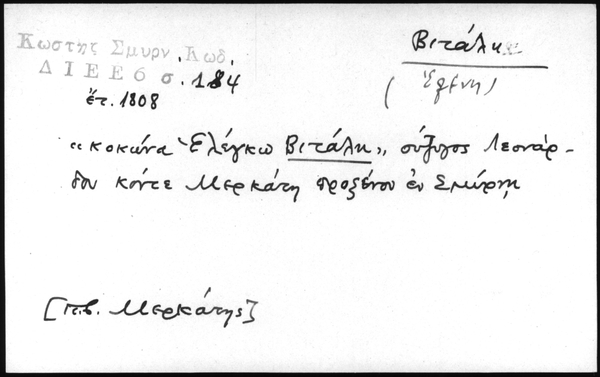 Κωστής Σμυρν. Κωδ.
ΔΙΕΕ6 σ. 184
ἔτ. 1808
Βιτάλη
"κοκώνα Ἑλέγκω Βιτάλη", σύζυγος Λεονάρ-
δου κόντε Μερκάτη προξένου ἐν Σμύρνῃ
[πβ. Μερκάτης]